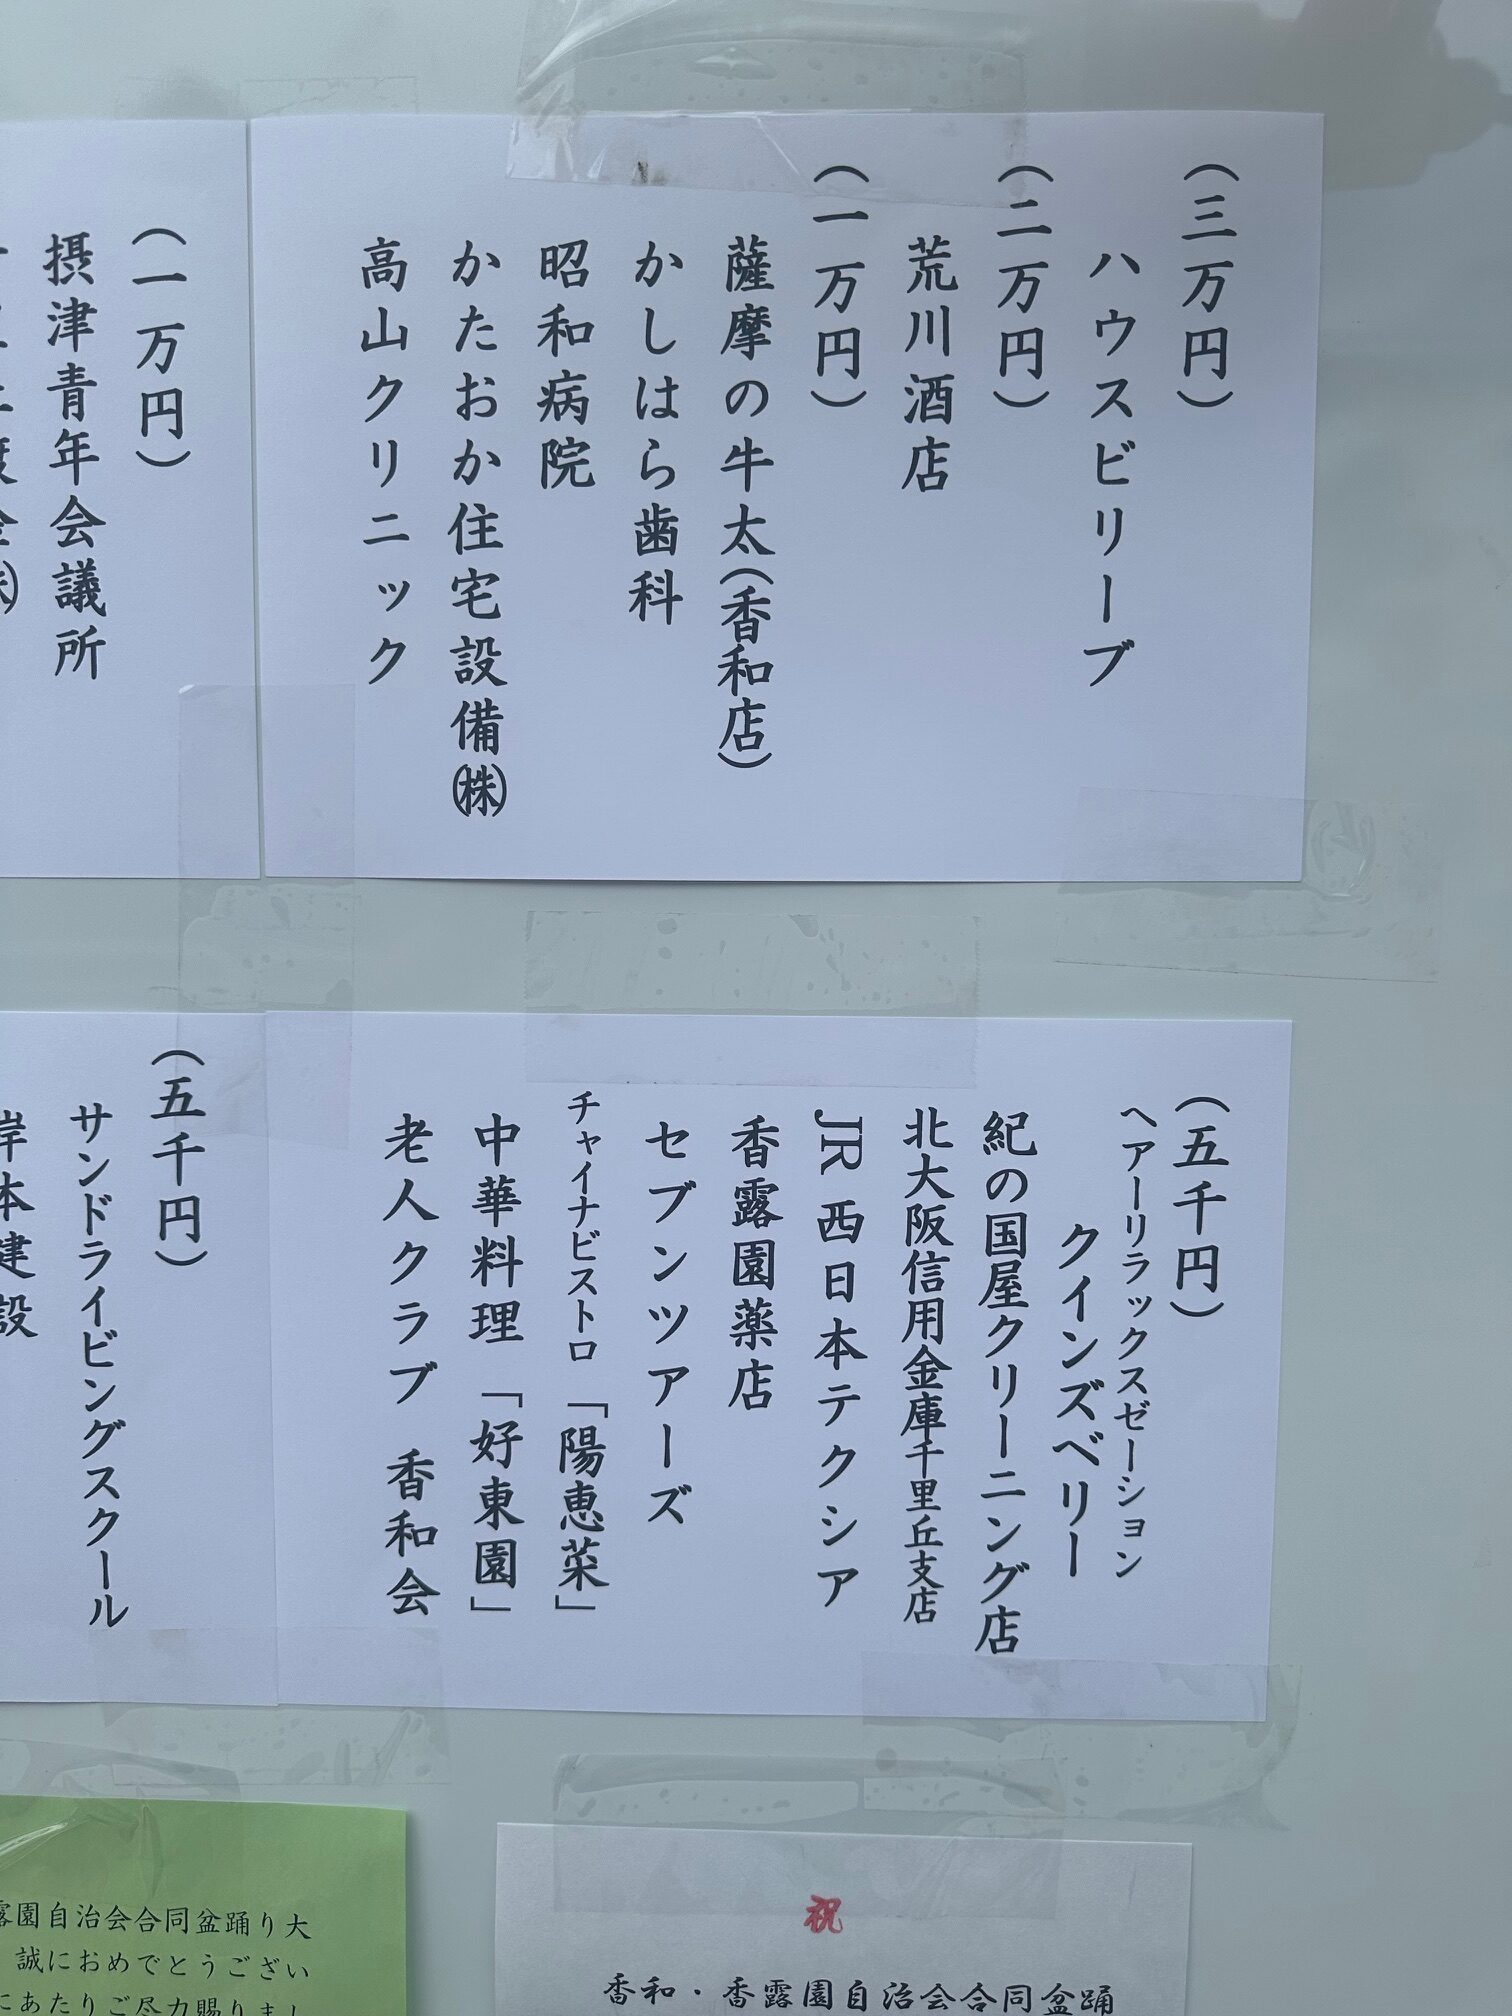 (三万円)
ハウスビリーブ
(二万円)
荒川酒店
(一万円)
薩摩の牛太(香和店)
かしはら歯科
昭和病院
かたおか住宅設備㈱
高山クリニック
(一万円)
摂津青年会議所
(五千円)
ヘアーリラックスゼーション
クインズベリー
紀の国屋クリーニング店
北大阪信用金庫千里丘支店
JR西日本テクシア
香露園薬店
セブンツアーズ
チャイナビストロ「陽恵菜」
中華料理「好東園」
老人クラブ 香和会
(五千円)
サンドライビングスクール
岸本建設
露園自治会合同盆踊り大
誠におめでとうござい
にあたりご尽力賜りまし
祝
香和・香露園自治会合同盆踊